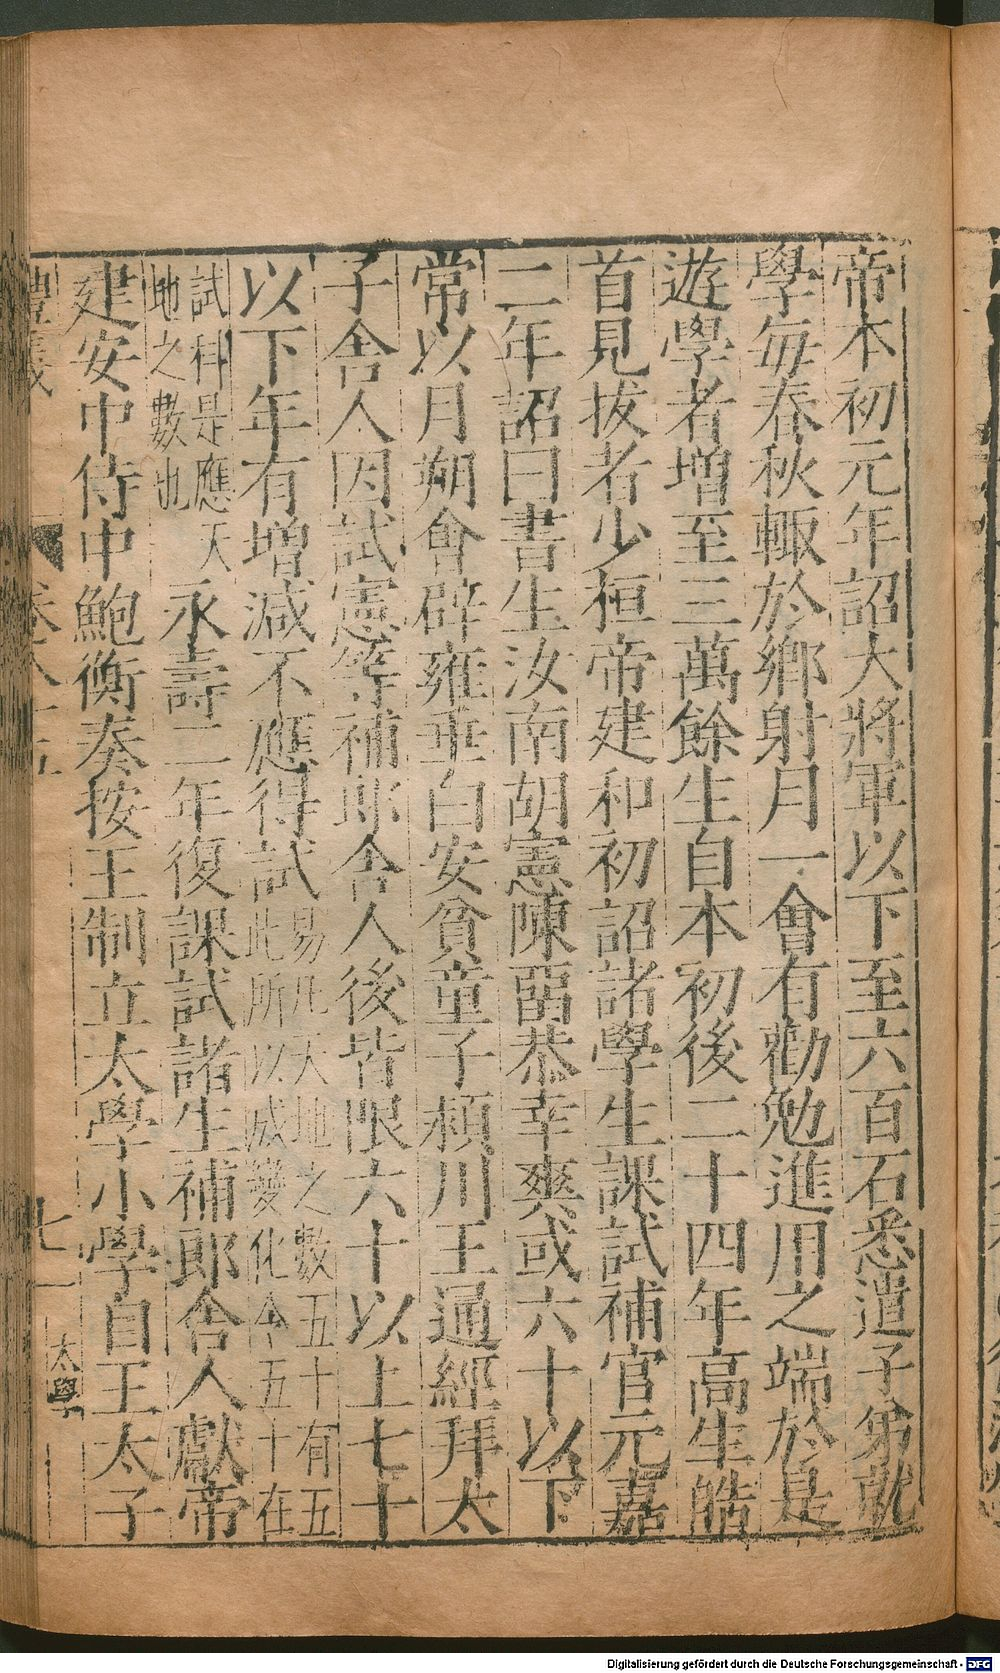 帝本初元年詔大將軍以下至六百石悉遣子弟就
學每春秋輙於鄉射月一會有勸勉進用之端於是
遊學者增至三萬餘生自本初後二十四年高生皓
首見拔者少桓帝建和初詔諸學生課試補官元嘉
二年詔曰書生汝南胡憲陳留恭幸爽或六十以下
常以月朔會辟雍垂白安貧童子頻川王通經拜太
子舍人因試憲等補郎舍人後皆限六十以上七十
以下年有增減不應得試易凡天地之數五十有五
此所以成變化今五十在
試科是應天
地之數也永壽二年復課試諸生補郎舍人獻帝
建安中侍中鮑衡奏按王制立太學小學自王太子
七
太學
Digitalisierung gefördert durch die Deutsche Forschungsgemeinschaft - DFG